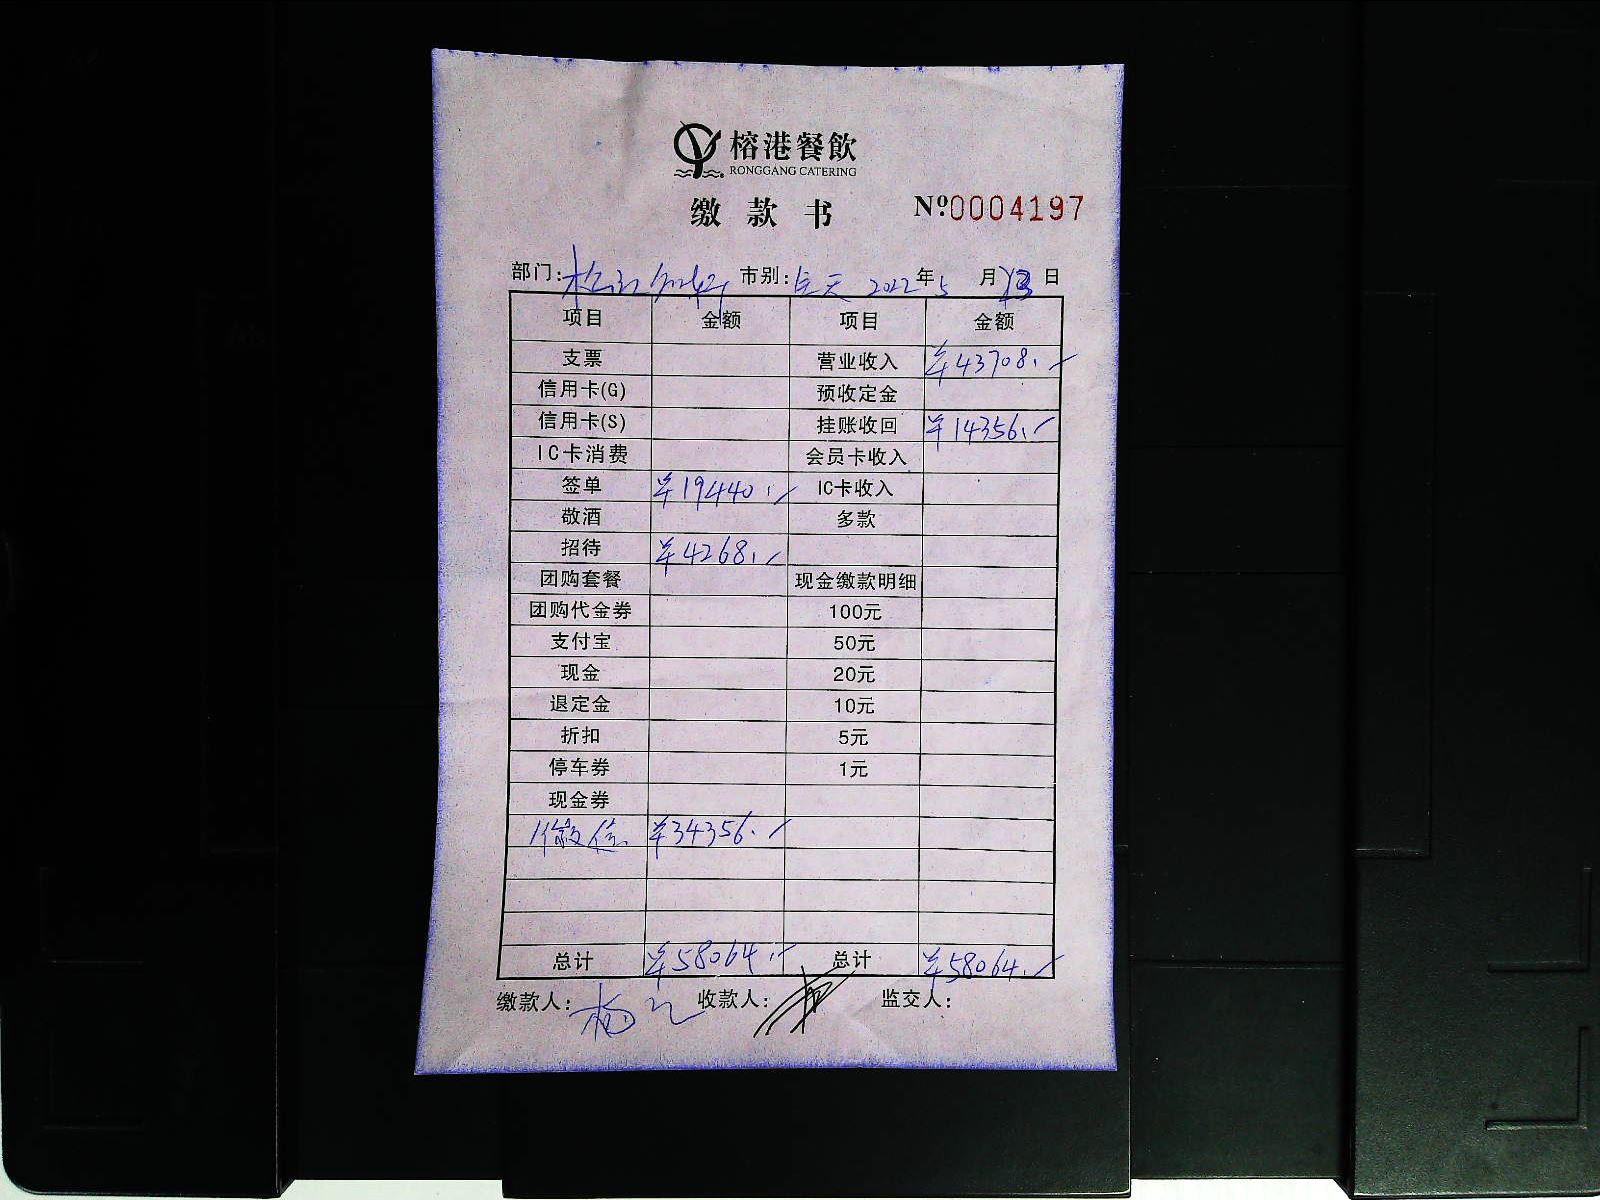 榕港餐飲
RONGGANG CATERING
缴款书 Nº0004197
部门: 市别: 全天 2022年5月13日
项目 金额 项目 金额
支票 营业收入 ¥43708.
信用卡(G) 预收定金
信用卡(S) 挂账收回 ¥14356.
IC卡消费 会员卡收入
签单 ¥19440. IC卡收入
敬酒 多款
招待 ¥4268.
团购套餐 现金缴款明细
团购代金券 100元
支付宝 50元
现金 20元
退定金 10元
折扣 5元
停车券 1元
现金券
微信 ¥34356.
总计 ¥58064. 总计 ¥58064.
缴款人: 杨 收款人: 监交人: